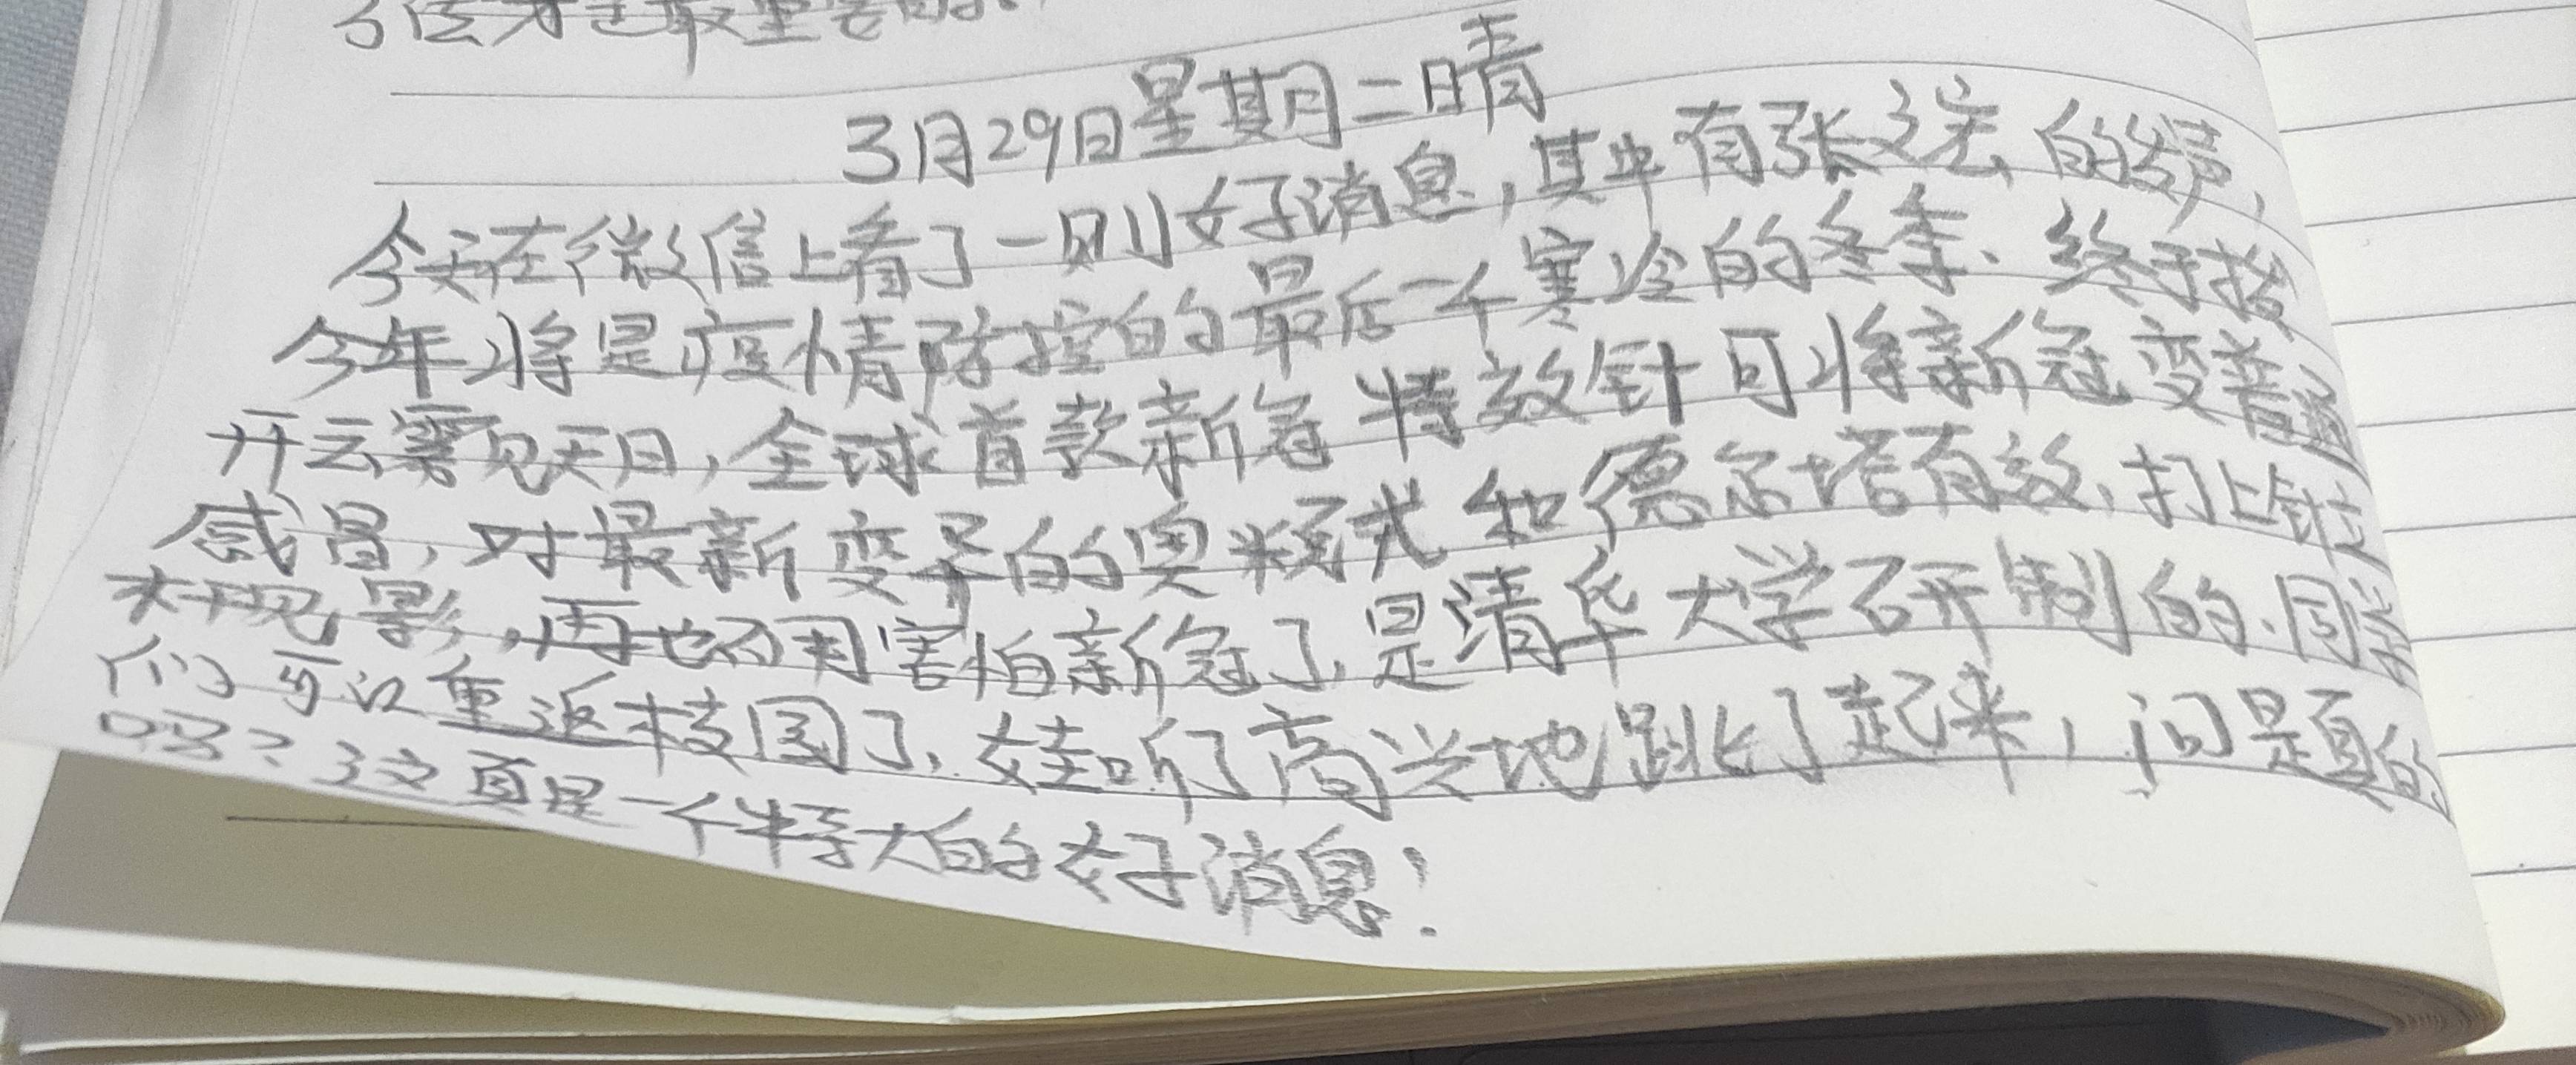 了法才是最重要的。
3月29日星期二晴
今天在微信上看了一则好消息,其中有张文宏的发声,
今年将是疫情防控的最后一个寒冷的冬季、终于拨
开云雾见天日,全球首款新冠特效针可将新冠变普通
感冒,对最新变异的奥秘克戎和德尔塔有效,打上针立
杆见影,再也不用害怕新冠了,是清华大学研制的.同学
们可以重返校园了,娃听了高兴地跳了起来,问是真的
吗?这真是一个特大的好消息!